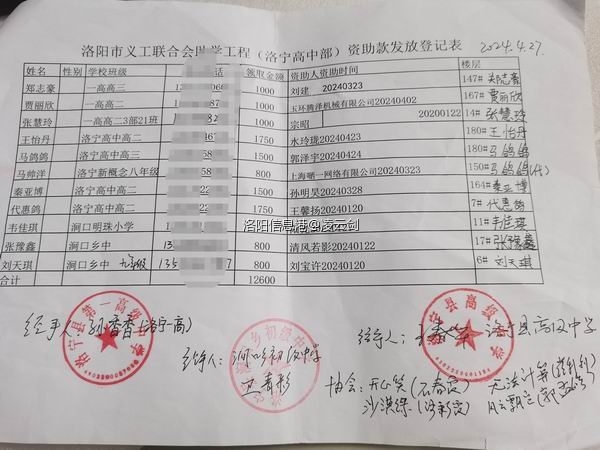 洛阳市义工联合会助学工程（洛宁高中部）资助款发放登记表 2024.4.27.
姓名 性别 学校班级 话 领取金额 资助人资助时间 楼层
郑志豪 一高高三 1000 刘建 20240323 147#
贾丽欣 一高高二 1000 玉环腾泽机械有限公司20240402 167# 贾丽欣
张慧玲 一高高二3部21班 1000 宗昭 20200122 14# 张慧玲
王怡丹 洛宁高中高二 1750 水玲珑20240423 180# 王怡丹
马鸽鸽 洛宁高中高三 1500 郭泽宇20240424 180# 马鸽鸽
马帅洋 洛宁新概念八年级 800 上海晒一网络有限公司20240323 150# 马鸽鸽(代)
秦亚博 洛宁高中高二 1500 孙明昊20240328 164# 秦亚博
代惠鸽 洛宁高中高二 1750 王馨扬20240120 7# 代惠鸽
韦佳琪 涧口明珠小学 800 11# 韦佳琪
张豫鑫 涧口乡中 13 800 清风若影20240122 17# 张豫鑫
刘天琪 涧口乡中 九年级 135 7 800 刘宝许20240120 6# 刘天琪
合计 12600
洛阳信息港@凌云剑
经手人: 孙香香(洛宁一高)
洛宁县第一高级中学
经办人: 涧口乡初级中学
乡初级中学
经手人: 洛宁县高级中学
洛宁县高级中学
协会: 开心笑(石春霞) 无法计算
沙淇绿